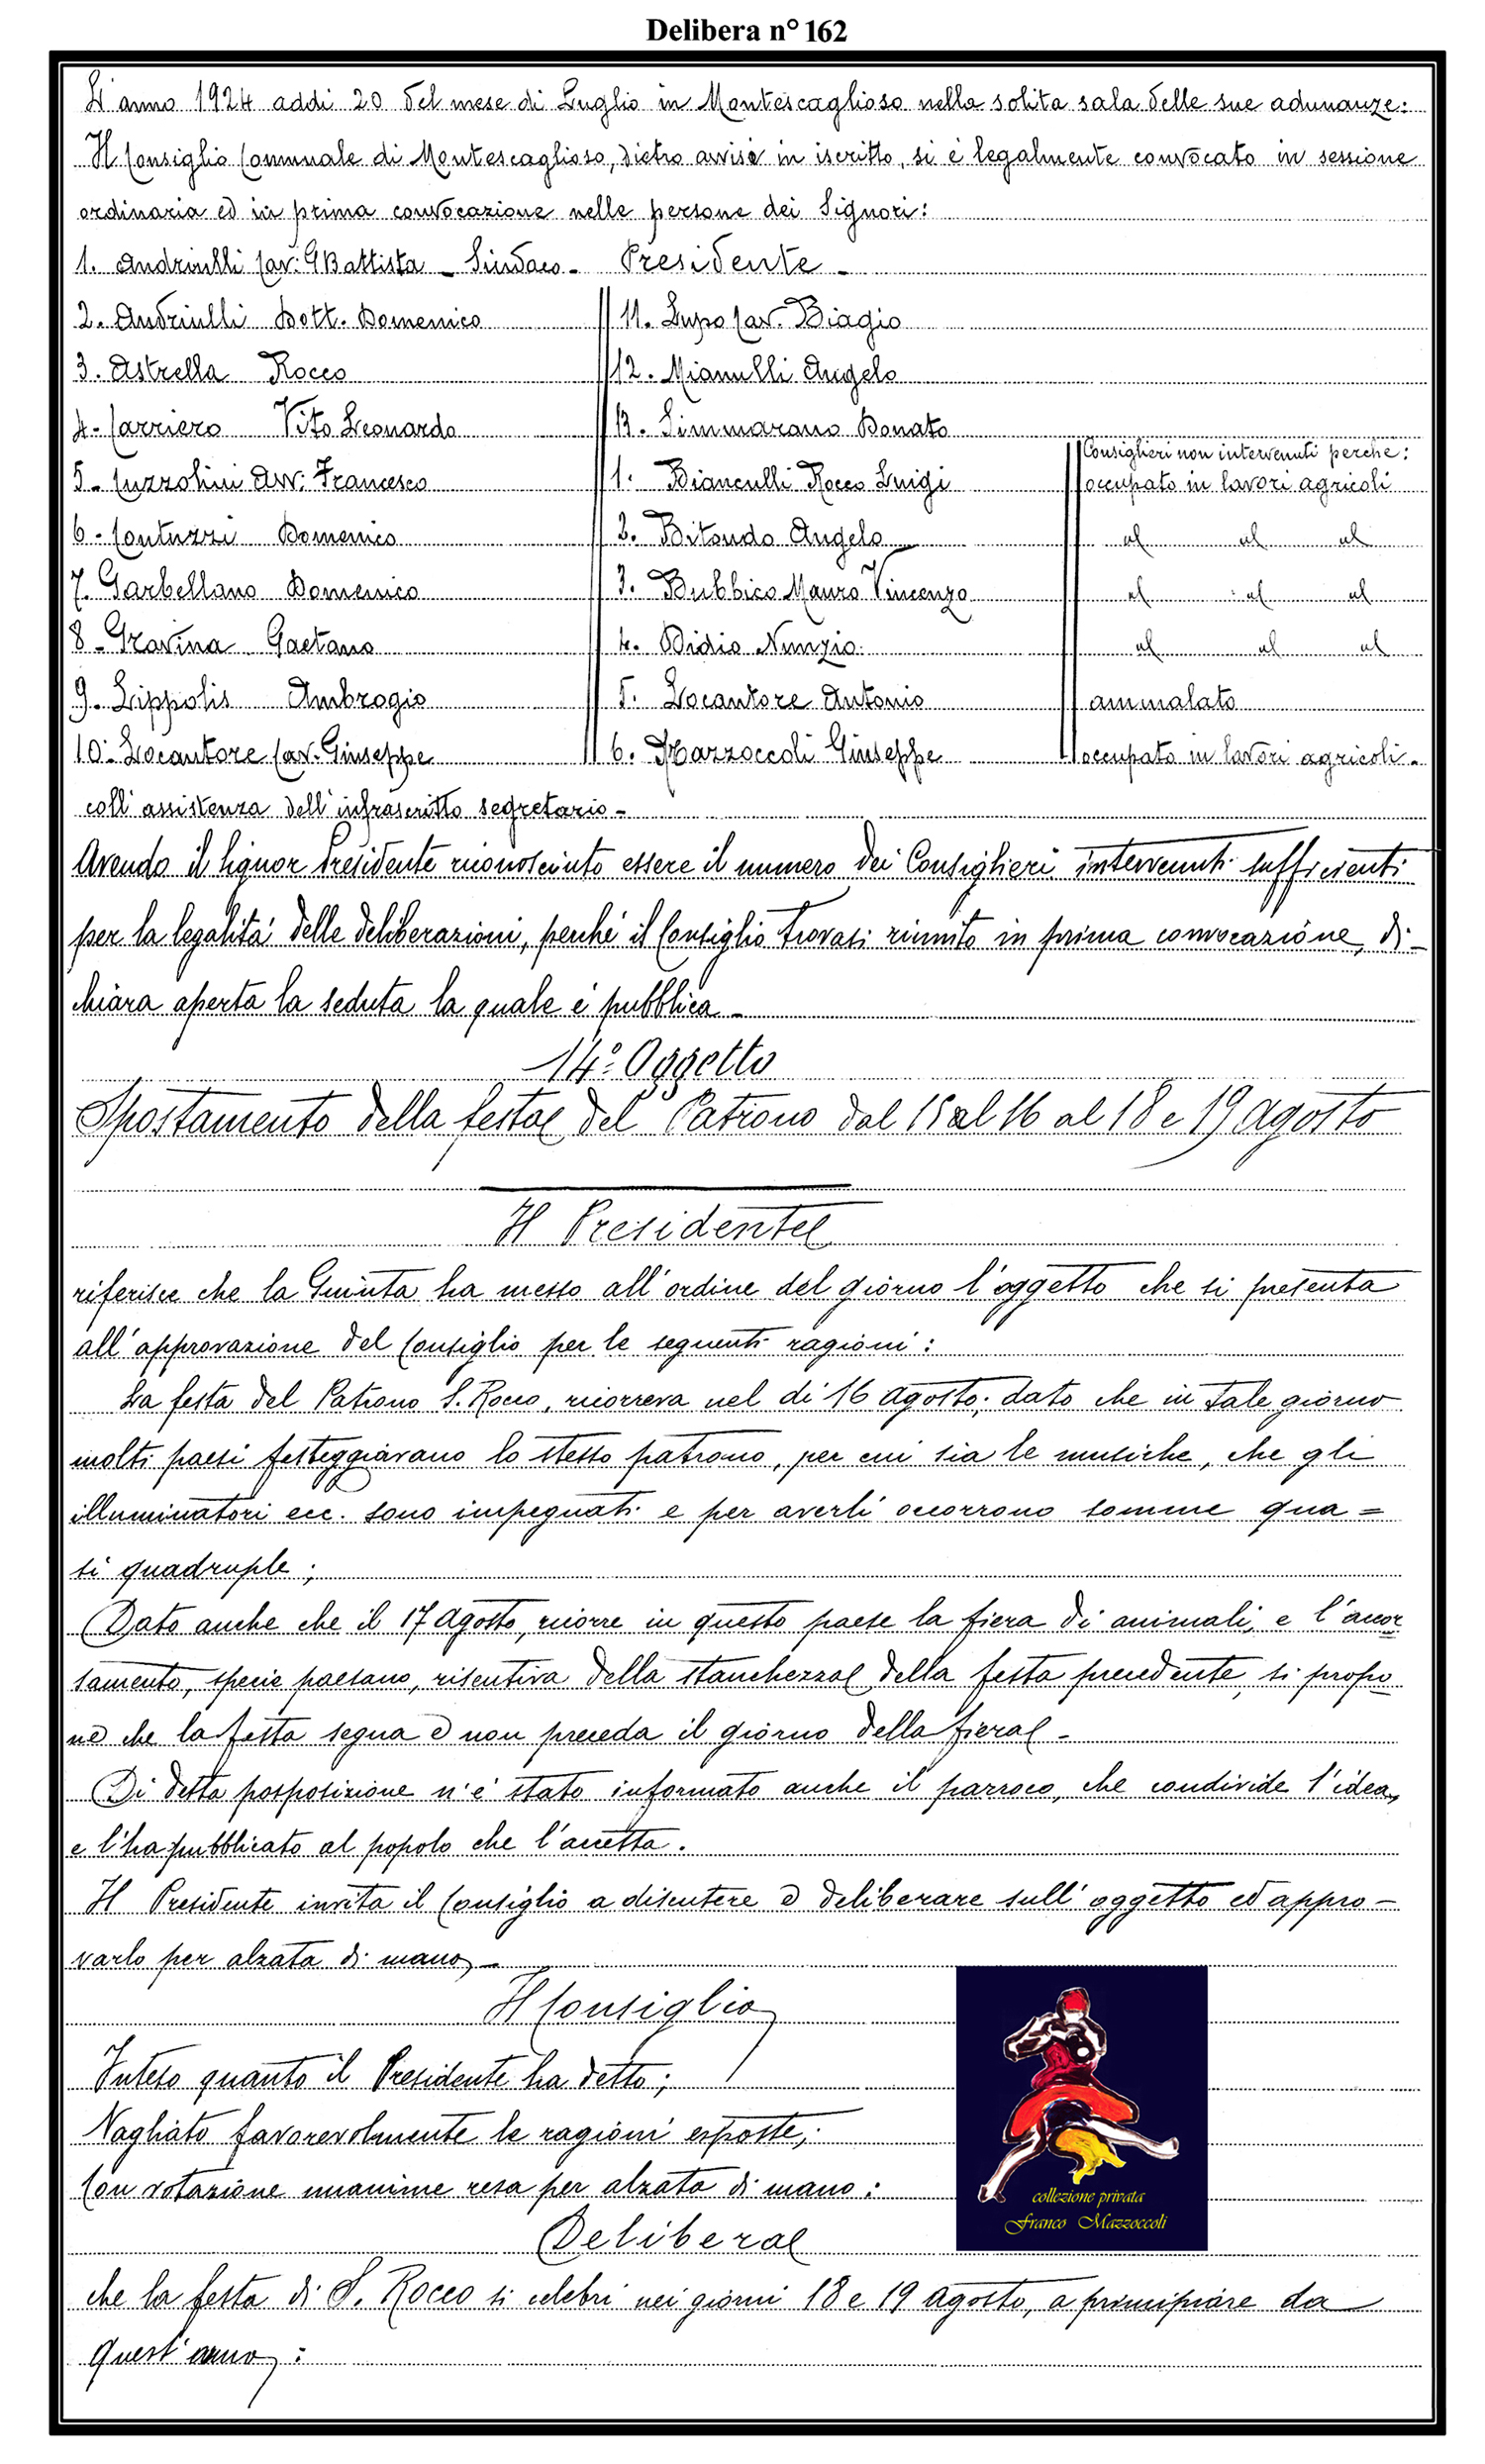 Delibera n° 162
L'anno 1924 addì 20 del mese di Luglio in Montescaglioso nella solita sala delle sue adunanze:
Il Consiglio Comunale di Montescaglioso, dietro avviso in iscritto, si è legalmente convocato in sessione
ordinaria ed in prima convocazione nelle persone dei Signori:
1. Andriulli Cav: GBattista - Sindaco - Presidente -
2. Andriulli Dott. Domenico
3. Astrella Rocco
4- Carriero Vito Leonardo
5- Cuzzolini Avv: Francesco
6- Contuzzi Domenico
7. Garbellano Domenico
8- Gravina Gaetano
9- Lippolis Ambrogio
10: Locantore Cav. Giuseppe
11. Lupo Cav. Biagio
12. Mianulli Angelo
13. Simmarano Donato
1. Bianculli Rocco Luigi
2. Bitondo Angelo
3. Bubbico Mauro Vincenzo
4. Didio Nunzio
5. Locantore Antonio
6. Mazzoccoli Giuseppe
Consiglieri non intervenuti perchè:
occupato in lavori agricoli
ammalato
occupato in lavori agricoli -
coll'assistenza dell'infrascritto segretario -
Avendo il Signor Presidente riconosciuto essere il numero dei Consiglieri intervenuti sufficienti
per la legalità delle deliberazioni, perché il Consiglio trovasi riunito in prima convocazione, di-
chiara aperta la seduta la quale é pubblica -
14° Oggetto
Spostamento della festa del Patrono dal 15 al 16 al 18 e 19 agosto
Il Presidente
riferisce che la Giunta ha messo all'ordine del giorno l'oggetto che si presenta
all'approvazione del Consiglio per le seguenti ragioni:
La festa del Patrono S. Rocco, ricorreva nel dì 16 agosto; dato che in tale giorno
molti paesi festeggiavano lo stesso patrono, per cui sia le musiche, che gli
illuminatori ecc. sono impegnati e per averli occorrono somme qua=
si quadruple;
Dato anche che il 17 agosto, ricorre in questo paese la fiera di animali, e l'accor
samento, specie paesano, risentiva della stanchezza della festa precedente, si propo
ne che la festa segua e non preceda il giorno della fiera -
Di detta posposizione n'é stato informato anche il parroco, che condivide l'idea,
e l'ha pubblicato al popolo che l'accetta.
Il Presidente invita il Consiglio a discutere e deliberare sull'oggetto ed appro-
varlo per alzata di mano -
Il Consiglio
Inteso quanto il Presidente ha detto;
Vagliato favorevolmente le ragioni esposte;
Con votazione unanime resa per alzata di mano:
Delibera
che la festa di S. Rocco si celebri nei giorni 18 e 19 agosto, a principiare da
quest'anno:
collezione privata
Franco Mazzoccoli